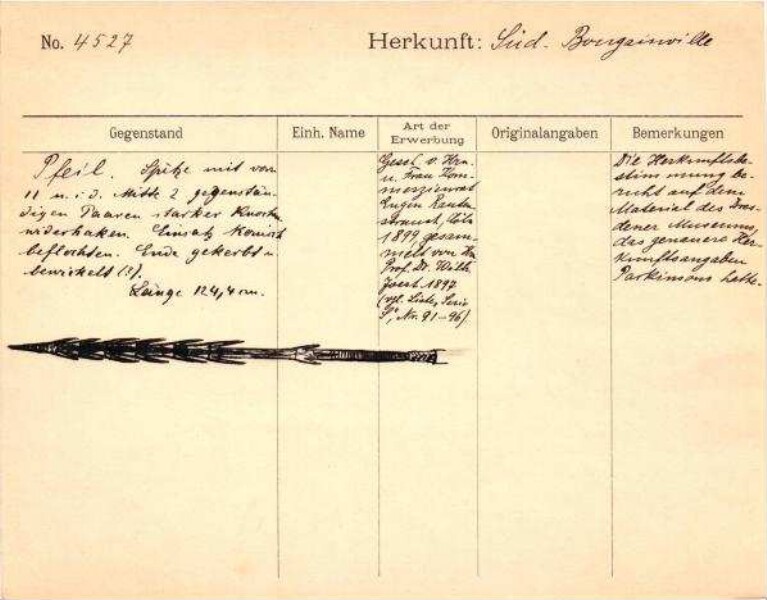 No. 4527
Herkunft: Süd. Bougainville
Gegenstand
Einh. Name
Art der Erwerbung
Originalangaben
Bemerkungen
Pfeil. Spitze mit von
11 u. i. d. Mitte 2 gegenstän-
digen Paaren starker Knochen
widerhaken. Einsatz konisch
beflochten. Ende gekerbt u.
bewickelt (?).
Länge 124,4 cm.
Gesch. v. Hrn.
u. Frau Kom-
merzienrat
Eugen Rauten-
strauch, Cöln
1899, gesam-
melt von Hn
Prof. Dr. Wilh.
Joest 1897
(vgl. Liste, Serie
S, Nr. 91-96)
Die Herkunftsbe-
stimmung be-
ruht auf dem
Material des Dres-
dener Museums,
das genauere Her-
kunftsangaben
Parkinsons hatte.